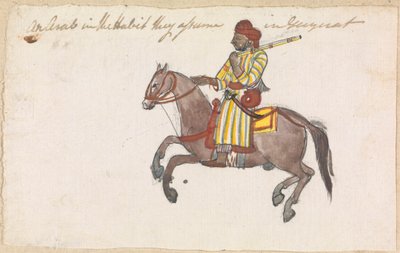 An Arab in the Habit they assume in Guzerat